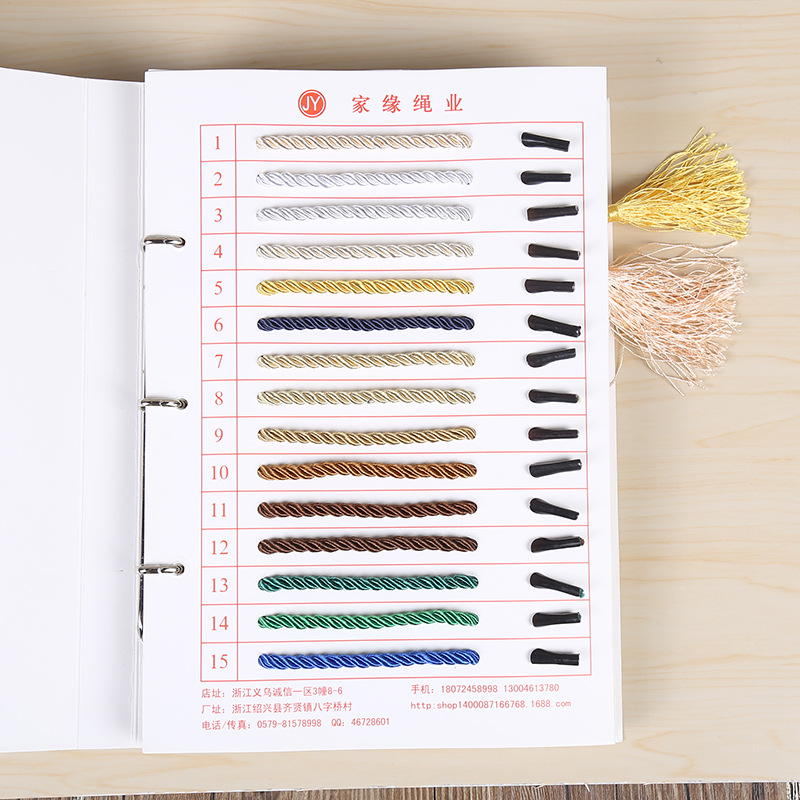 JY 家缘绳业
1
2
3
4
5
6
7
8
9
10
11
12
13
14
15
店址：浙江义乌诚信一区3幢8-6
手机：18072458998 13004613780
厂址：浙江绍兴县齐贤镇八字桥村
http:shop1400087166768.1688.com
电话/传真：0579-81578998 QQ：46728601